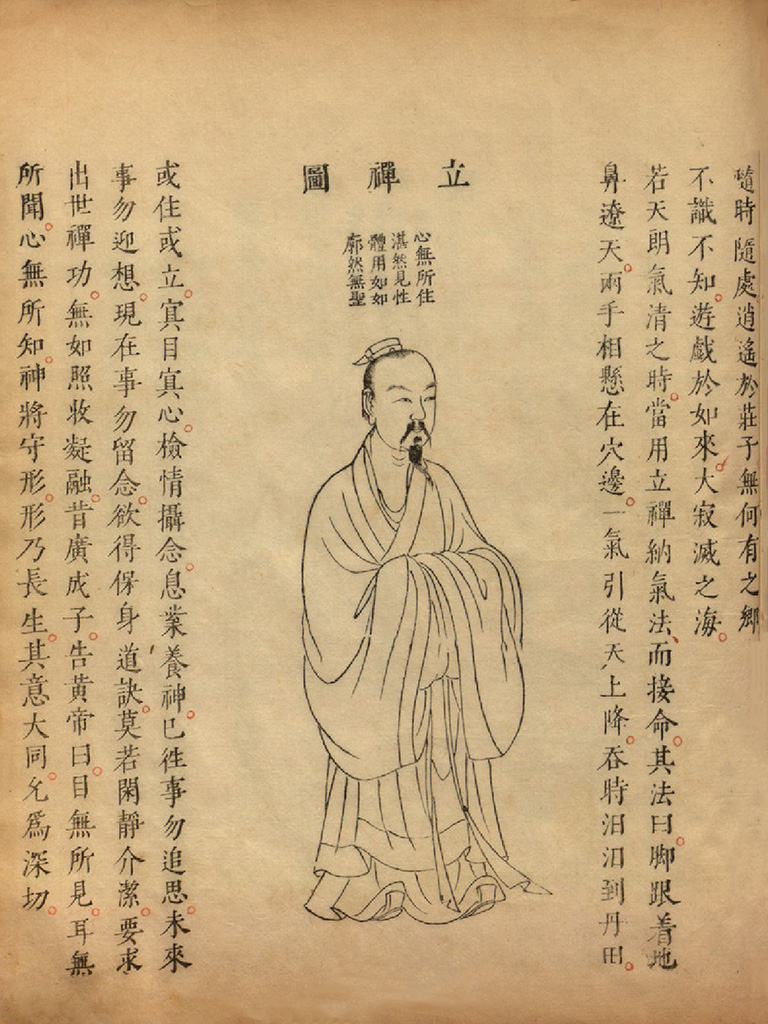 隨時隨處逍遙於莊子無何有之鄉
不識不知遊戲於如來大寂滅之海
若天朗氣清之時當用立禪納氣法而接命其法曰脚跟着地
鼻遼天兩手相懸在穴邊一氣引從天上降吞時汩汩到丹田
立禪圖
心無所住
湛然見性
體用如如
廓然無聖
或住或立冥目冥心檢情攝念息業養神已徃事勿追思未來
事勿迎想現在事勿留念欲得保身道訣莫若閑靜介潔要求
出世禪功無如照收凝融昔廣成子告黄帝曰目無所見耳無
所聞心無所知神將守形形乃長生其意大同允爲深切